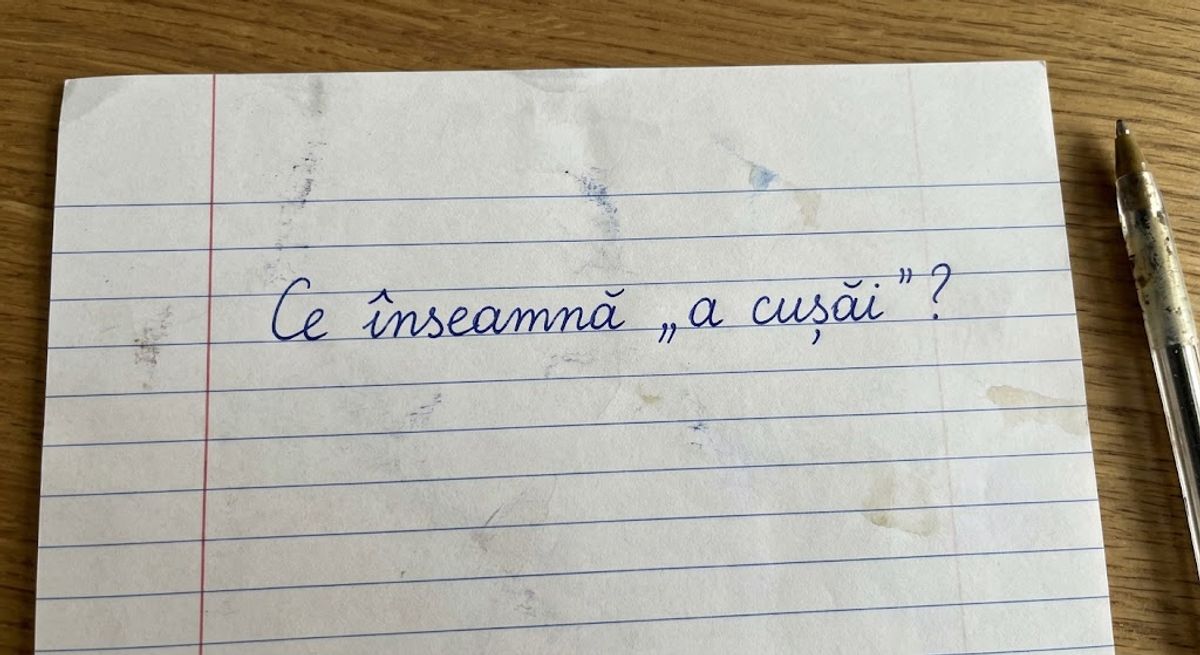 Ce înseamnă „a cușăi”?